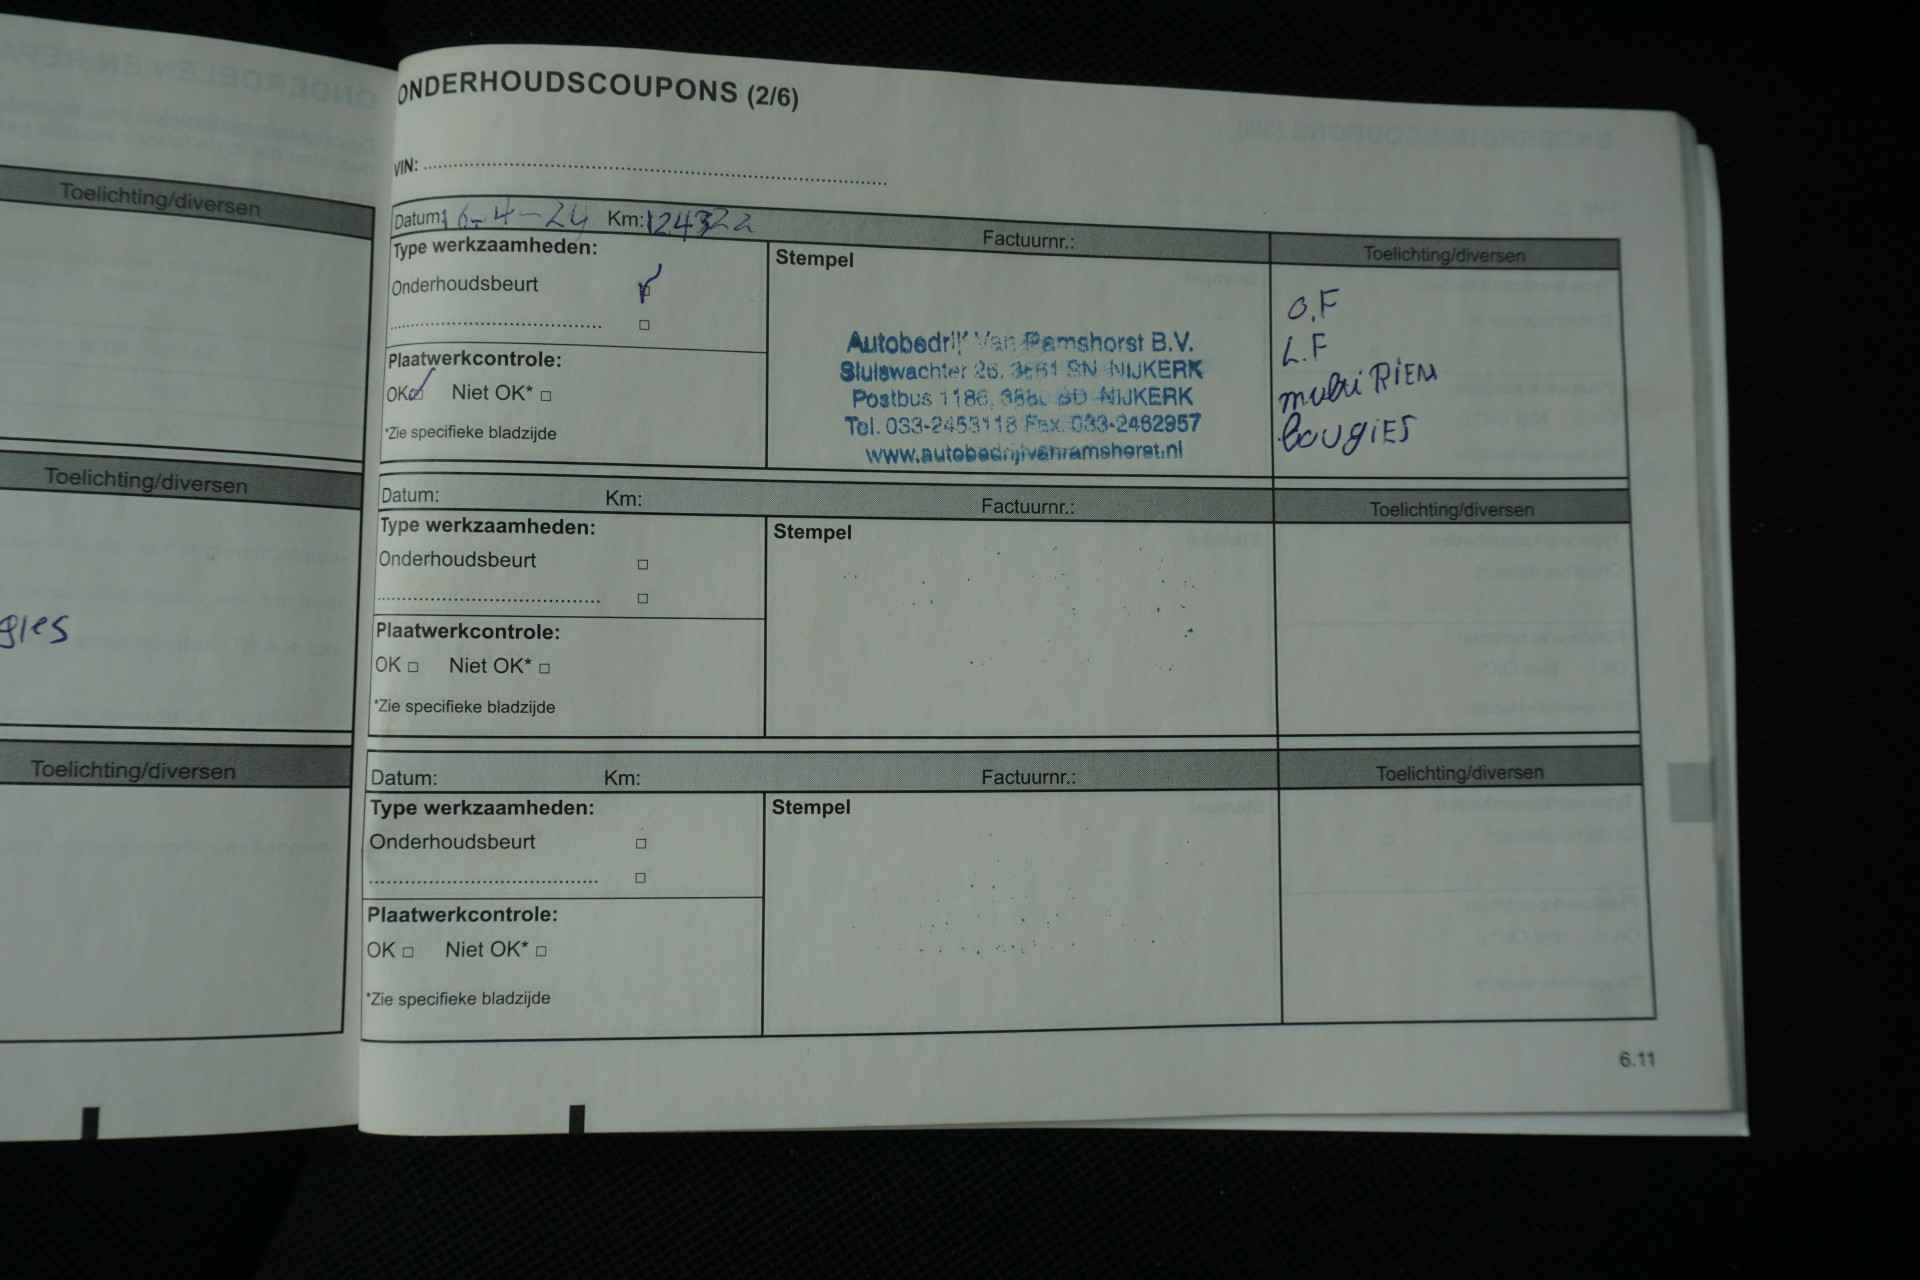 Toelichting/diversen
gies
Toelichting/diversen
Toelichting/diversen
ONDERHOUDSCOUPONS (2/6)
VIN:
Datum: 16-4-24 Km: 124322 Factuurnr.: Toelichting/diversen
Type werkzaamheden:
Stempel
Onderhoudsbeurt
Plaatwerkcontrole:
OK Niet OK*
*Zie specifieke bladzijde
Autobedrijf Van Ramshorst B.V.
Sluiswachter 26, 3861 SN NIJKERK
Postbus 1186, 3860 BD NIJKERK
Tel. 033-2453118 Fax. 033-2462957
www.autobedrijfvanramshorst.nl
O.F
L.F
multi RIEM
bougies
Datum: Km: Factuurnr.: Toelichting/diversen
Type werkzaamheden:
Stempel
Onderhoudsbeurt
Plaatwerkcontrole:
OK Niet OK*
*Zie specifieke bladzijde
Datum: Km: Factuurnr.: Toelichting/diversen
Type werkzaamheden:
Stempel
Onderhoudsbeurt
Plaatwerkcontrole:
OK Niet OK*
*Zie specifieke bladzijde
6.11